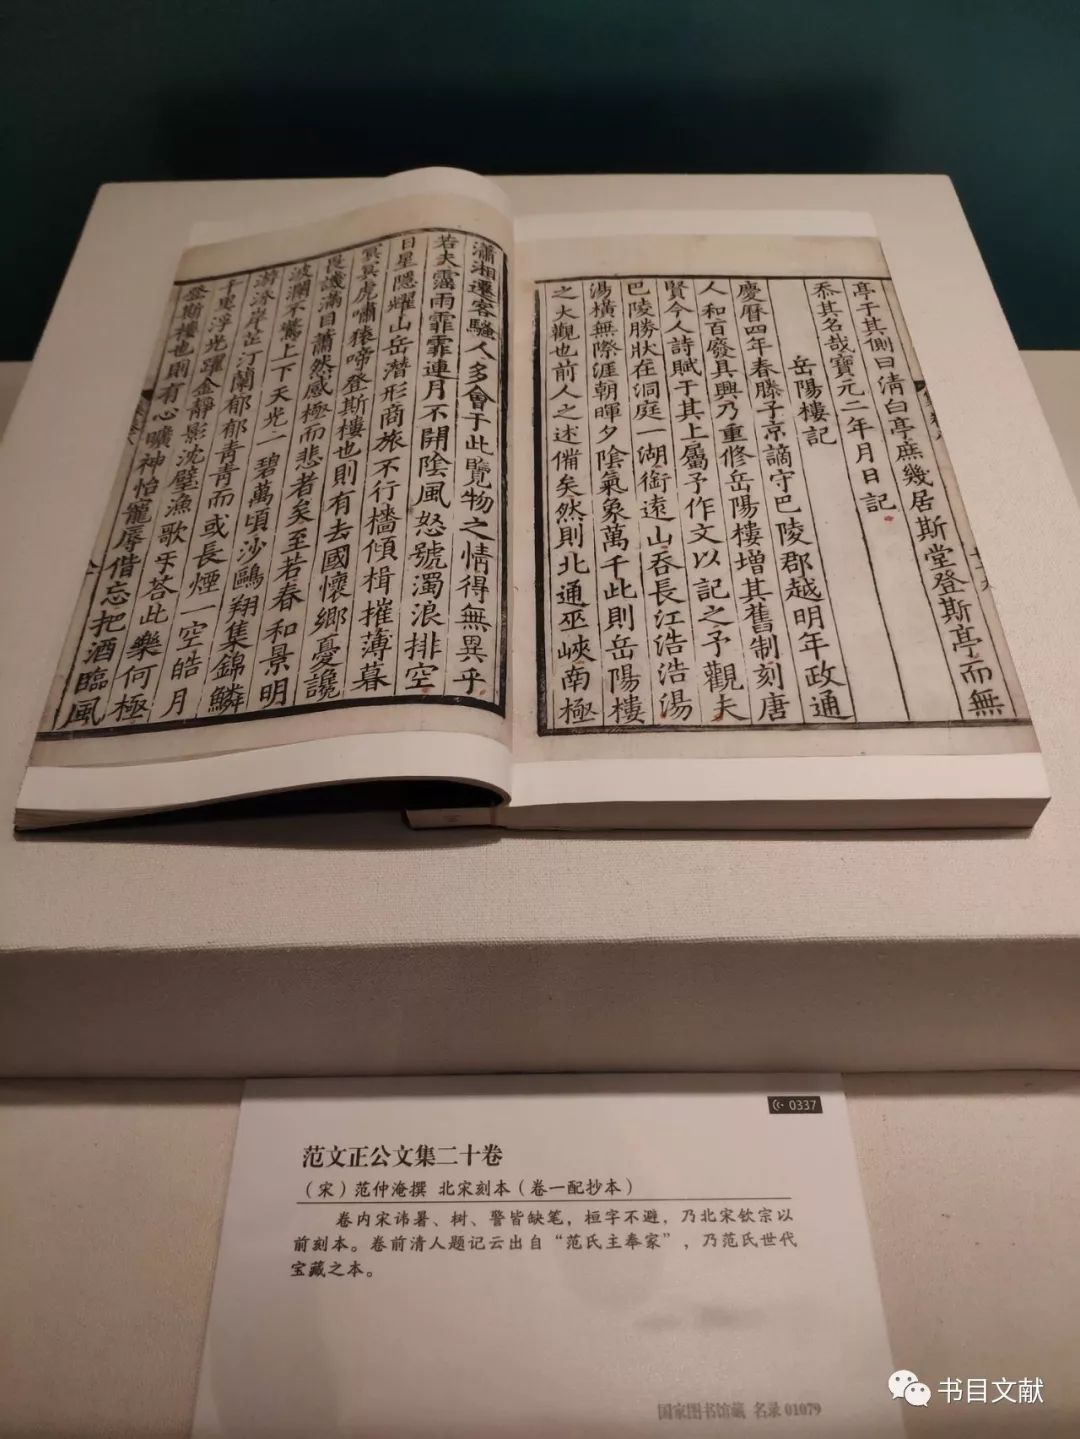 亭于其側曰清白亭庶幾居斯堂登斯亭而無
忝其名哉寶元二年月日記
岳陽樓記
慶曆四年春滕子京謫守巴陵郡越明年政通
人和百發具興乃重修岳陽樓增其舊制刻唐
賢今人詩賦于其上屬予作文以記之予觀夫
巴陵勝狀在洞庭一湖銜遠山吞長江浩浩湯
湯橫無際涯朝暉夕陰氣象萬千此則岳陽樓
之大觀也前人之述備矣然則北通巫峽南極
瀟湘遷客騷人多會于此覽物之情得無異乎
若夫霪雨霏霏連月不開陰風怒號濁浪排空
日星隱耀山岳潛形商旅不行檣傾楫摧薄暮
冥冥虎嘯猿啼登斯樓也則有去國懷鄉憂讒
畏譏滿目蕭然感極而悲者矣至若春和景明
波瀾不驚上下天光一碧萬頃沙鷗翔集錦鱗
游泳岸芷汀蘭郁郁青青而或長煙一空皓月
千里浮光躍金靜影沈璧漁歌互荅此樂何極
登斯樓也則有心曠神怡寵辱偕忘把酒臨風
0337
范文正公文集二十卷
（宋）范仲淹撰 北宋刻本（卷一配抄本）
卷内宋讳暑、树、警皆缺笔，桓字不避，乃北宋钦宗以
前刻本。卷前清人题记云出自“范氏主奉家”，乃范氏世代
宝藏之本。
国家图书馆藏 名录01079
书目文献